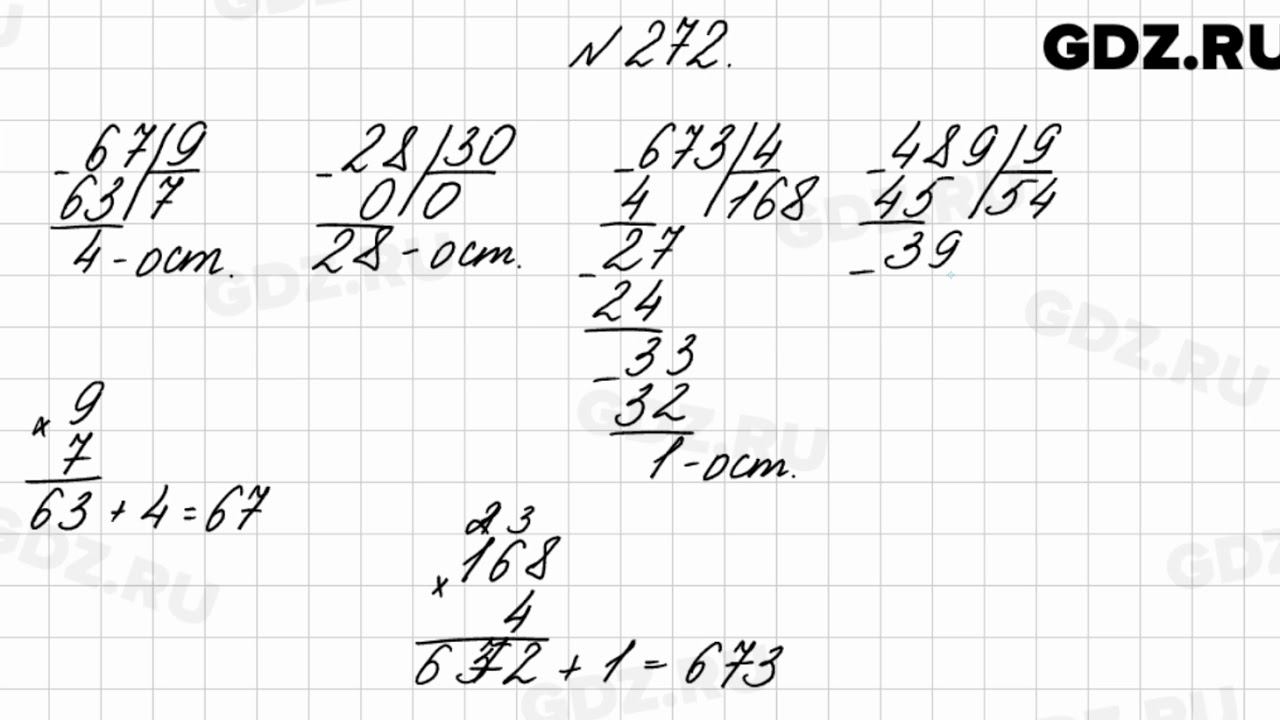 № 272.
GDZ.RU
- 67 | 9
63 | 7
4 - ост.
- 28 | 30
0 | 0
28 - ост.
- 673 | 4
4 | 168
- 27
24
- 33
32
1 - ост.
- 489 | 9
45 | 54
- 39
x 9
7
63 + 4 = 67
23
x 168
4
672 + 1 = 673
GDZ.RU
GDZ.RU
GDZ.RU
GDZ.RU
GDZ.RU
GDZ.RU
GDZ.RU